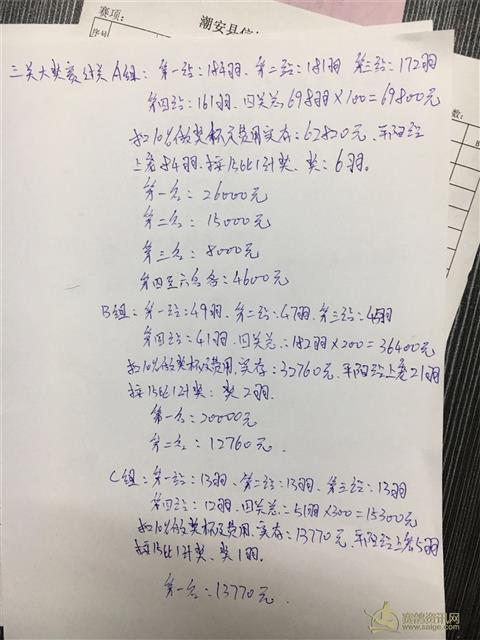 赛项:
潮安县信
序号
数:
三关大奖赛分关A组:第一站:184羽、第二站:181羽 第三站:172羽
第四站:161羽、四关总698羽×100=69800元
扣10%做奖杯及费用实存:62820元、平阳站
上笼84羽、按15比1计奖、奖:6羽。
第一名:26000元
第二名:15000元
第三名:8000元
第四至六名各:4600元
B组:第一站:49羽、第二站:47羽、第三站:45羽
第四站:41羽、四关总:182羽×200=36400元
扣10%做奖杯及费用、实存:32760元、平阳站上笼21羽
按15比1计奖:奖2羽。
第一名:20000元
第二名:12760元.
C组:第一站:13羽、第二站:13羽、第三站:13羽
第四站:12羽、四关总:51羽×300=15300元
扣10%做奖杯及费用、实存:13770元、平阳站上笼5羽
按15比1计奖、奖1羽.
第一名:13770元.
赛鸽资讯网
www.saige.com